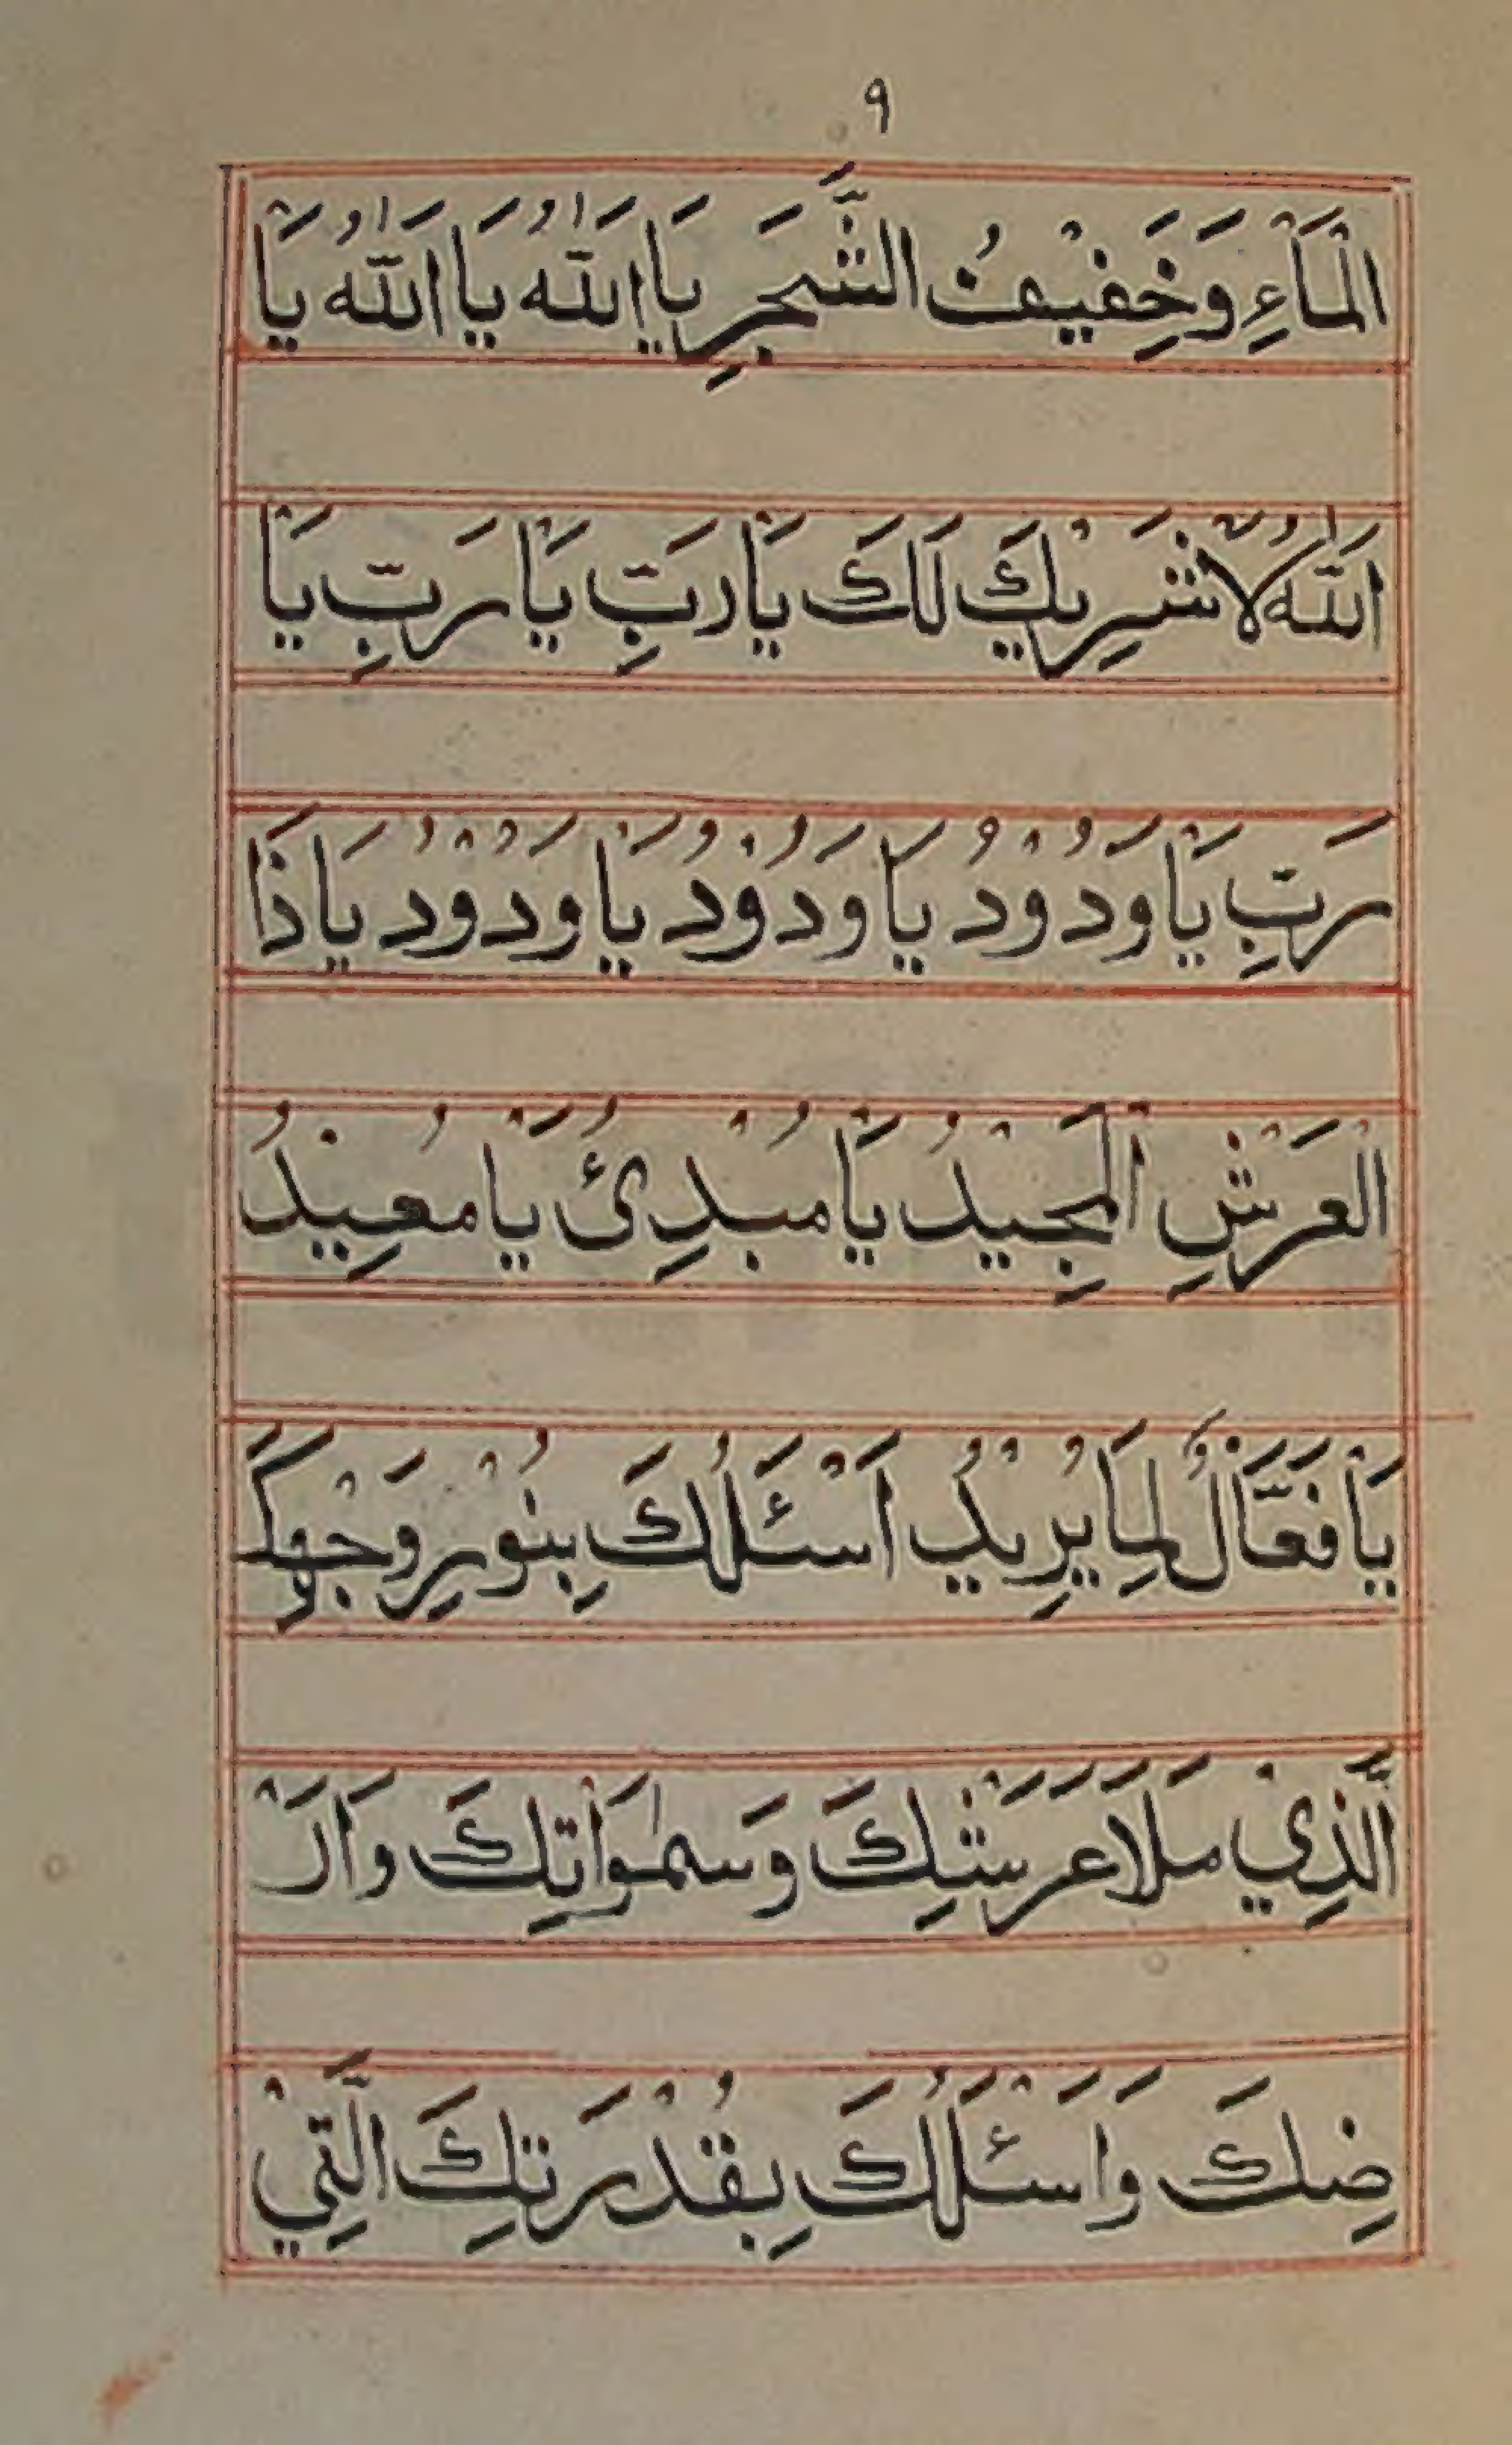 ٩
الْمَآءِ وَخَفِيْفُ الشَّجَرِ يَا اَللّٰهُ يَا اَللّٰهُ يَا
اَللّٰهُ لَا شَرِيْكَ لَكَ يَا رَبِّ يَا رَبِّ يَا
رَبِّ يَا وَدُوْدُ يَا وَدُوْدُ يَا وَدُوْدُ يَا ذَا
الْعَرْشِ الْمَجِيْدُ يَا مُبْدِئُ يَا مُعِيْدُ
يَا فَعَّالٌ لِمَا يُرِيْدُ اَسْئَلُكَ بِنُوْرِ وَجْهِكَ
الَّذِيْ مَلَاَ عَرْشِكَ وَسَمٰوَاتِكَ وَاَرْ
ضِكَ وَاَسْئَلُكَ بِقُدْرَتِكَ الَّتِيْ